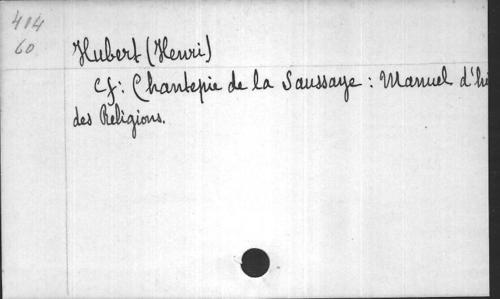 414
60
Hubert (Henri)
Cf: Chantepie de la Saussaye : Manuel d'hi
des Religions.